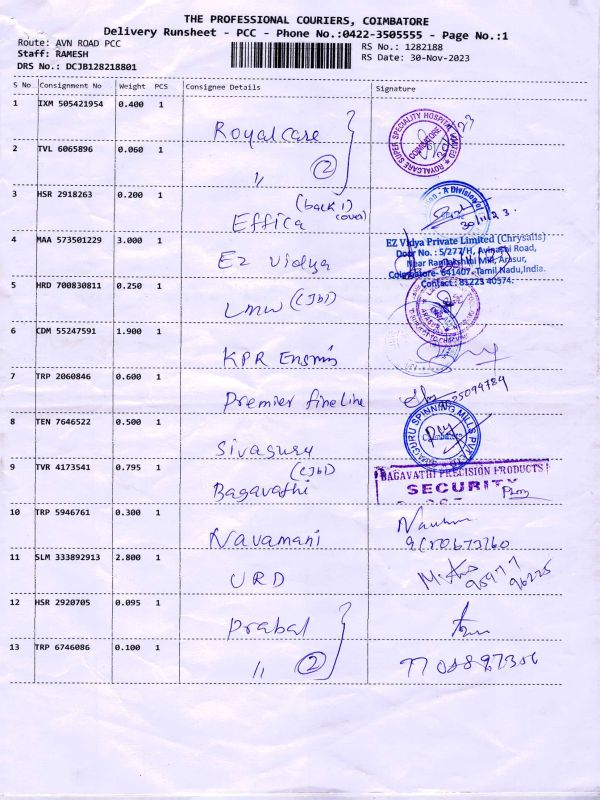 THE PROFESSIONAL COURIERS, COIMBATORE
Delivery Runsheet - PCC - Phone No.:0422-3505555 - Page No.:1
Route: AVN ROAD PCC
Staff: RAMESH
DRS No.: DCJB128218801
RS No.: 1282188
RS Date: 30-Nov-2023
S No Consignment No Weight PCS Consignee Details Signature
1 IXM 505421954 0.400 1 Royalcare
ROYALCARE SUPER SPECIALITY HOSPITAL LIMITED
COIMBATORE
2 TVL 6065896 0.060 1 〃 2
3 HSR 2918263 0.200 1 Effica (back 1)
- A Division of
30/11/23.
4 MAA 573501229 3.000 1 Ez vidya
EZ Vidya Private Limited (Chrysalis)
Door No. : 5/277/H, Avinashi Road,
Near Rangalakshmi Mill, Arasur,
Coimbatore- 641407. Tamil Nadu, India.
Contact : 81223 40374.
5 HRD 700830811 0.250 1 LMW (CJb1)
6 CDM 55247591 1.900 1 KPR
7 TRP 2060846 0.600 1 Premier fineline
8 TEN 7646522 0.500 1 Sivaguru
SIVAGURU SPINNING MILLS PVT
Coimbatore
9 TVR 4173541 0.795 1 Bagavathi (CJb1)
BAGAVATHI PRECISION PRODUCTS
SECURITY
10 TRP 5946761 0.300 1 Navamani
11 SLM 333892913 2.800 1 URD
95977
96225
12 HSR 2920705 0.095 1 Prabal
13 TRP 6746086 0.100 1 〃 2